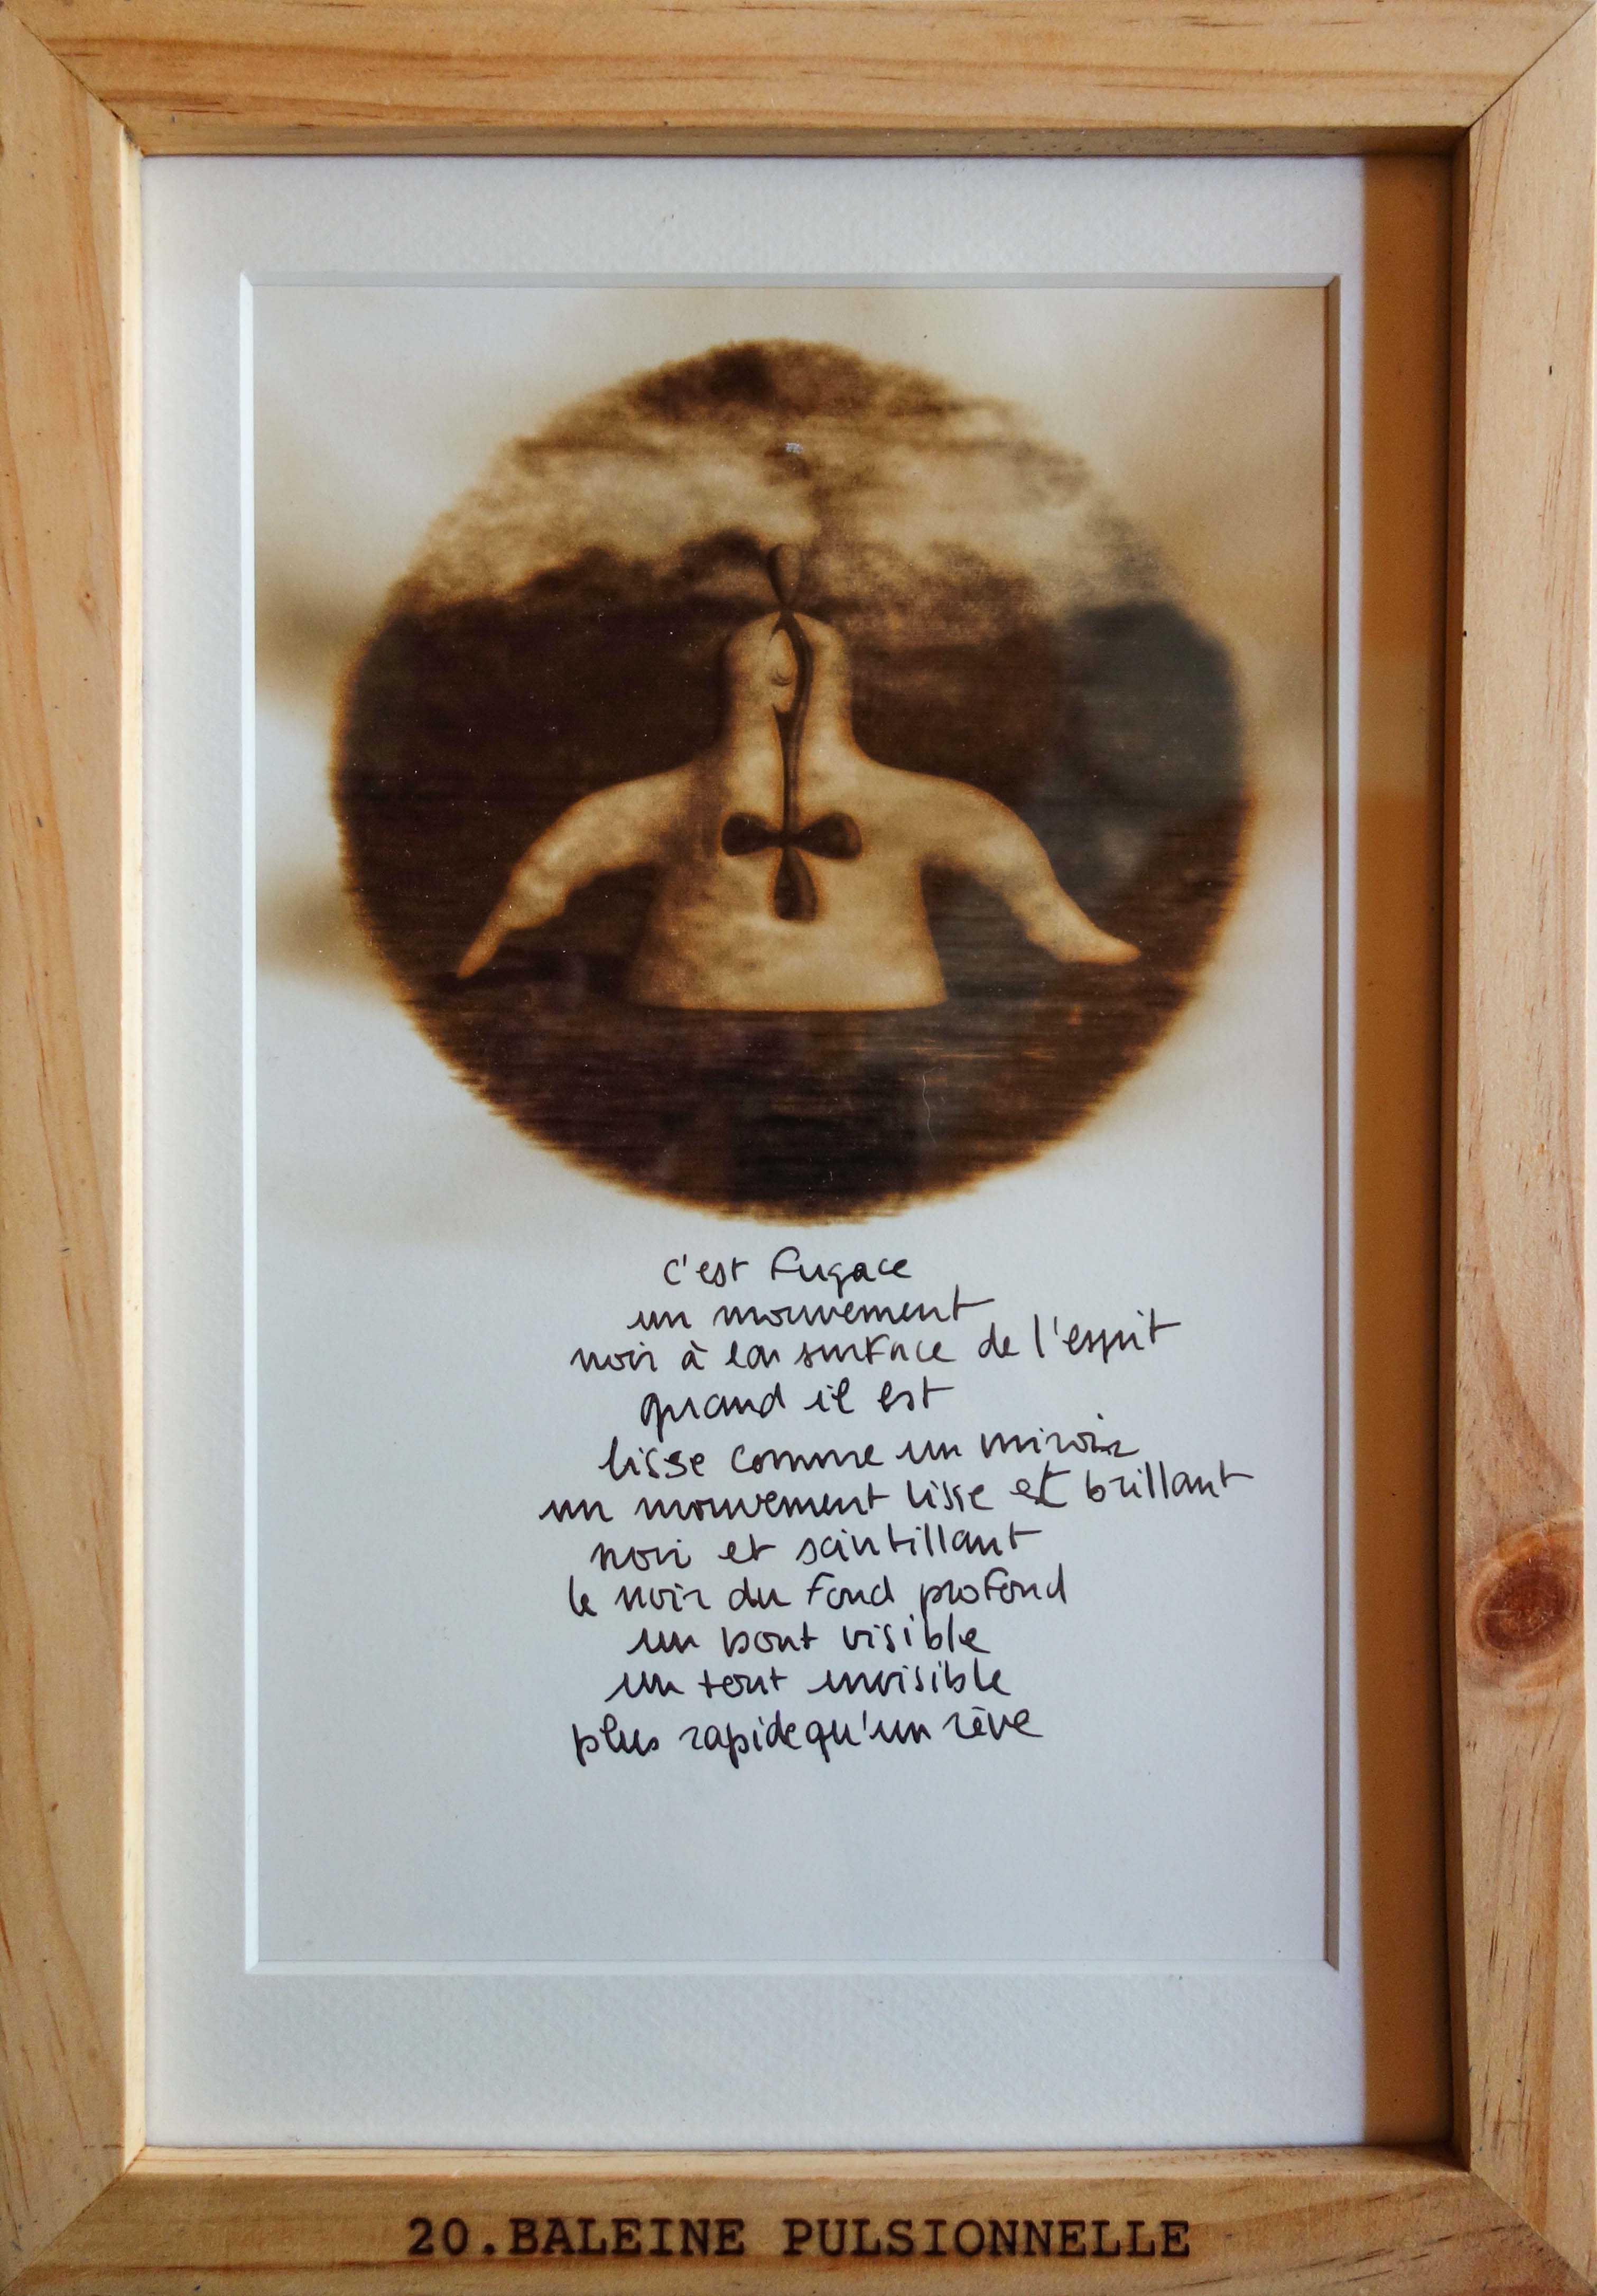 c'est fugace
un mouvement
noir à la surface de l'esprit
quand il est
lisse comme un miroir
un mouvement lisse et brillant
noir et scintillant
le noir du fond profond
un bout visible
un tout invisible
plus rapide qu'un rêve
20.BALEINE PULSIONNELLE